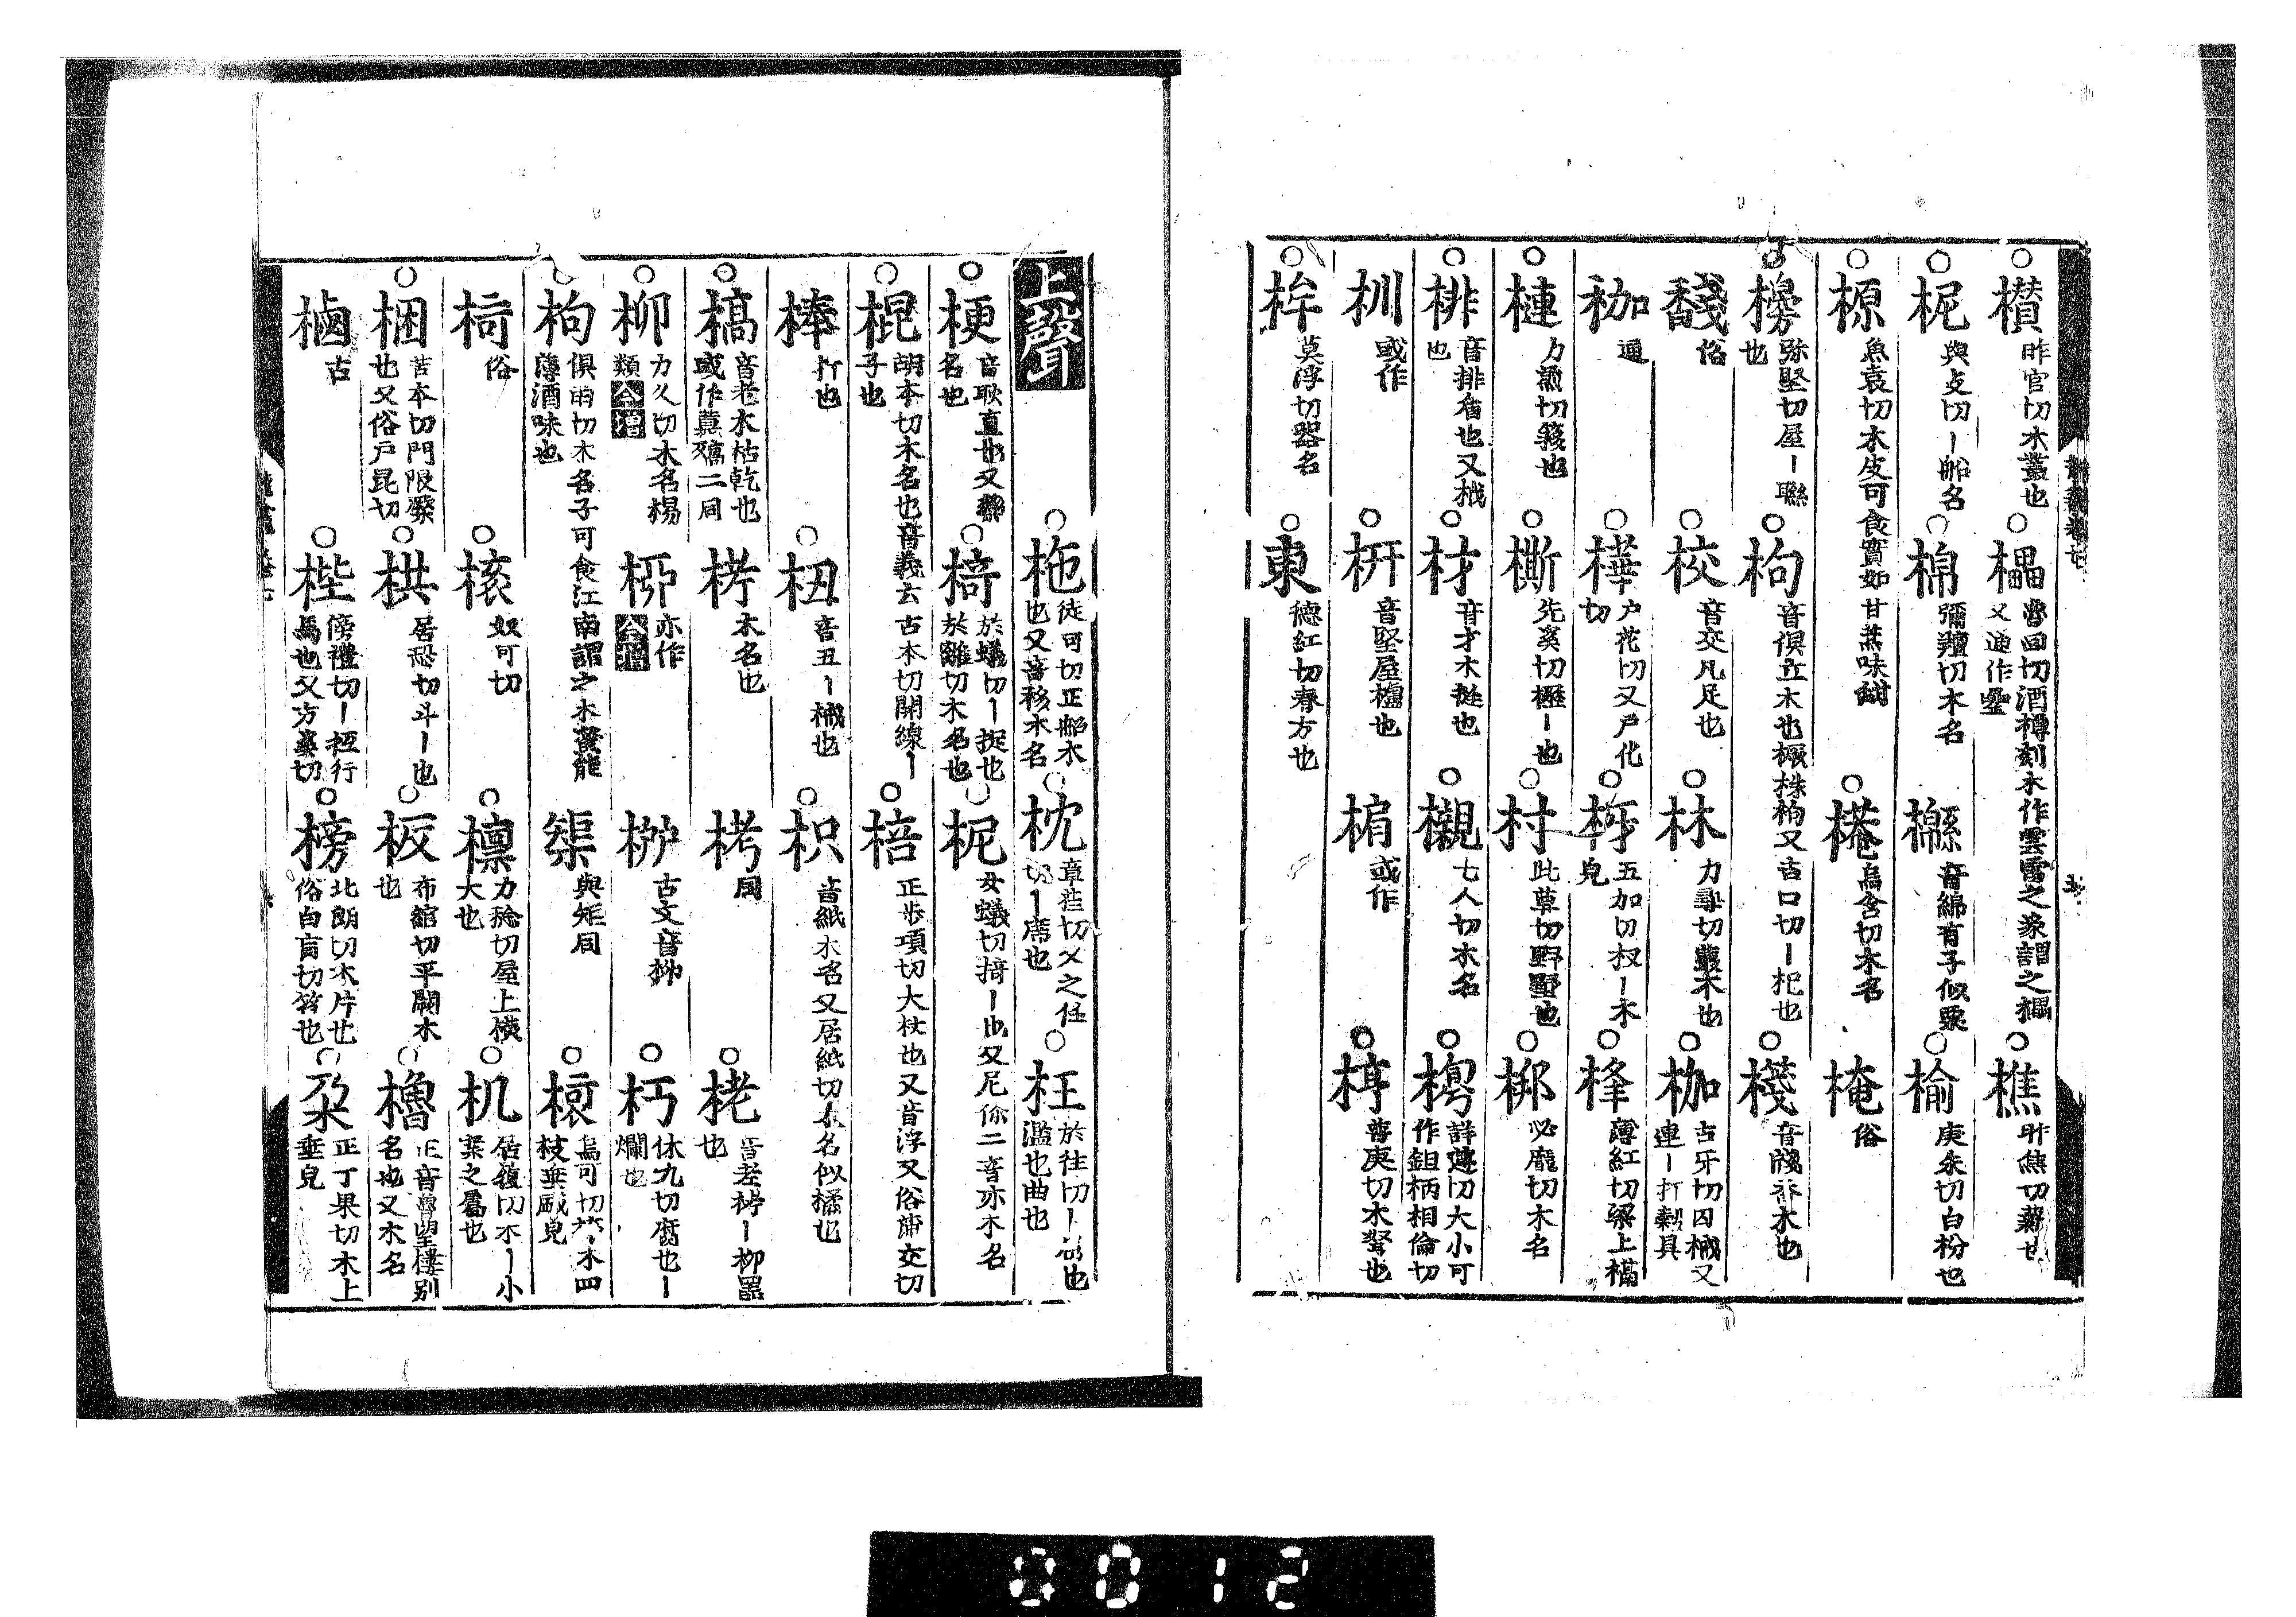 欑昨官切木叢也櫑魯回切酒樽刻木作雲雷之象謂之櫑又通作罍樵昨焦切薪也
柅與攴切丨船名棉彌氊切木名櫾音綿有子似栗榆庚朱切白枌也
榞魚袁切木皮可食實如甘蔗味甜㮙烏含切木名𣖶俗
櫋弥堅切屋丨聯也枸音俱立木也橛株枸又古口切丨杞也棧音牋香木也
馢俗校音交凡足也林力尋切叢木也枷古牙切囚械又連丨打穀具
枷通樺户花切又戸化切枒五加切杈丨木皃桻薄紅切梁上檽
槤力氊切簃也㯕先奚切櫪丨也村此尊切野墅也梆必龐切木名
排音排盾也又栰也材音才木梃也櫬七人切木名㮔詳遵切大小可作鉏柄相倫切
杊或作枅音堅屋櫨也㭴或作椁普庚切木弩也
桙莫浮切器名東德紅切春方也
上聲柂徒可切正船木也又音移木名枕章荏切又之任切丨席也枉於往切丨屈也濫也曲也
梗音耿直也又藥名也椅於蟻切丨㧗也於離切木名也柅女蟻切掎丨也又尼你二音亦木名
棍胡本切木名也音義云古本切開線丨子也棓正步項切大杖也又音浮又俗蒲交切
棒打也杻音丑丨械也枳音紙木名又居紙切木名似橘也
槁音老木枯乾也或作藁殦二同栲木名也栲同栳音老栲丨柳器也
柳力久切木名楊類今增桺亦作今增桞古文音柳朽休九切腐也丨爛也
枸俱雨切木名子可食江南謂之木蜜能薄酒味也榘與矩同榱烏可切榱丨木四枝垂皃
㭃俗㮏奴可切檁力稔切屋上橫大也机居履切木丨小案之屬也
梱苦本切門限橜也又俗戸昆切栱居恐切斗丨也板布綰切平闊木也櫓正音魯望樓別名也又木名
樐古梐傍禮切丨枑行馬也又方奚切榜北朗切木片也俗白盲切笞也朶正丁果切木上垂皃
0012